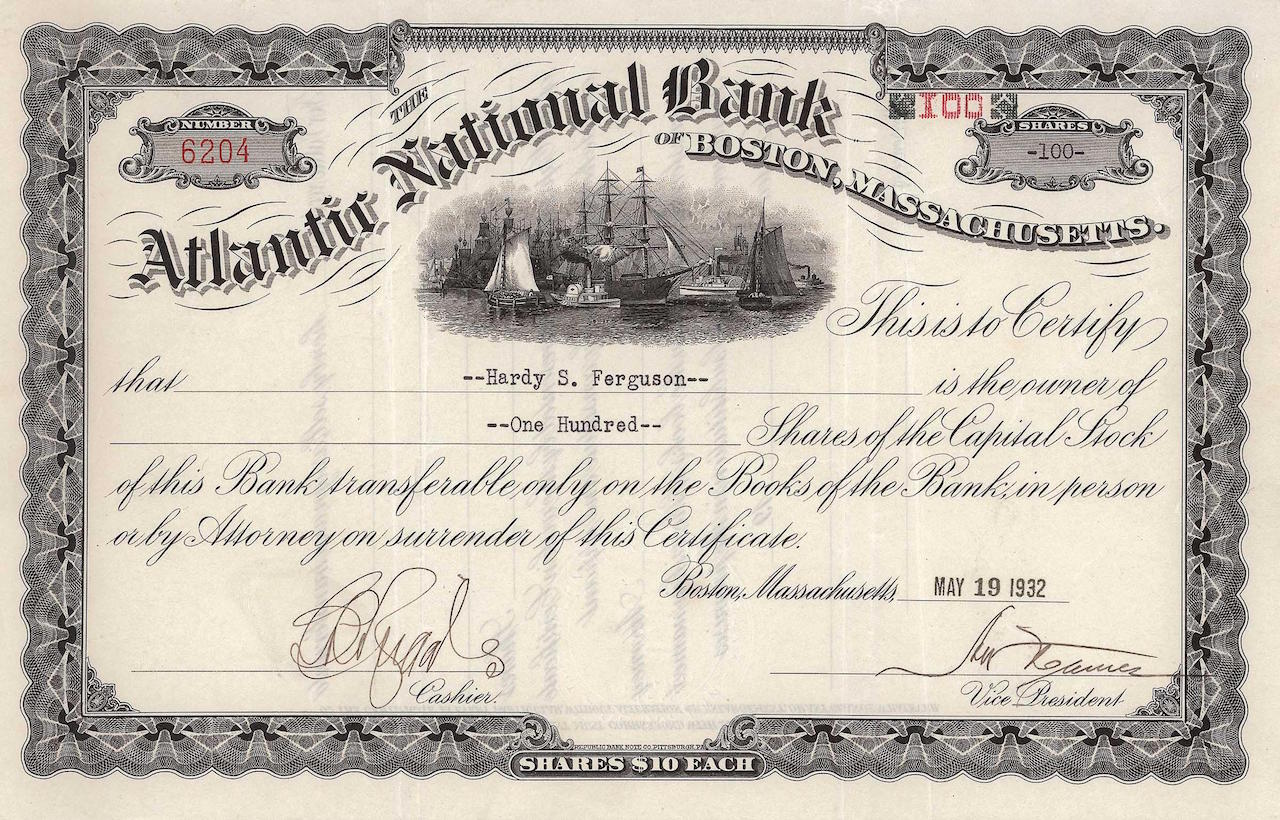 THE
Atlantic National Bank
OF BOSTON, MASSACHUSETTS.
NUMBER
6204
100
SHARES
-100-
This is to Certify
that --Hardy S. Ferguson-- is the owner of
--One Hundred-- Shares of the Capital Stock
of this Bank transferable only on the Books of the Bank, in person
or by Attorney on surrender of this Certificate.
Boston, Massachusetts, MAY 19 1932
Cashier.
Vice President
REPUBLIC BANK NOTE CO. PITTSBURGH, PA.
SHARES $10 EACH